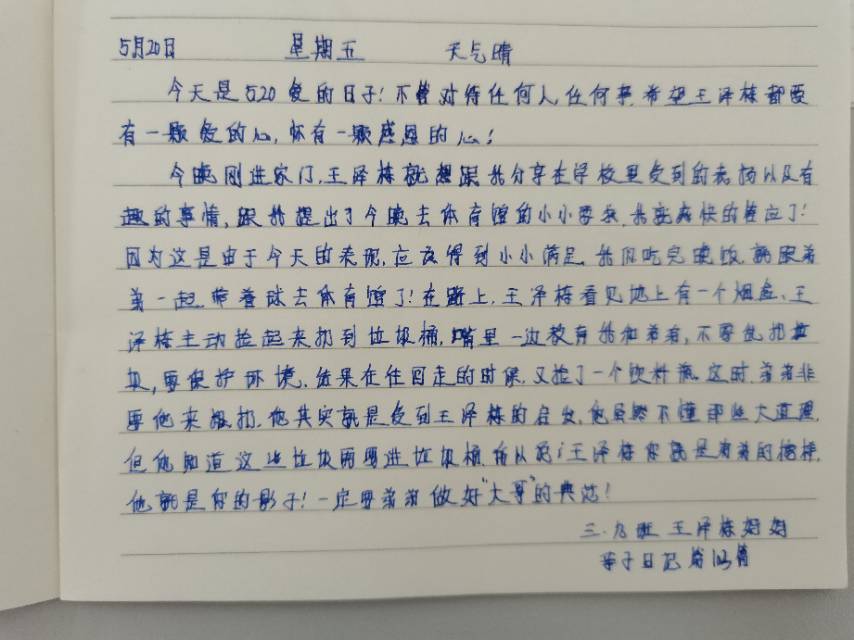 5月20日 星期五 天气晴
今天是520爱的日子!不管对待任何人,任何事,希望王泽栋都要
有一颗爱的心,怀有一颗感恩的心!
今晚刚进家门,王泽栋就想跟我分享在学校里受到的表扬以及有
趣的事情,跟我提出了今晚去体育馆的小小要求,我就爽快的答应了!
因为这是由于今天的表现,应该得到小小满足,我们吃完晚饭,就跟着
弟一起,带着球去体育馆了!在路上,王泽栋看见地上有一个烟盒,王
泽栋主动捡起来扔到垃圾桶,嘴里一边教育我和弟弟,不要乱扔垃
圾,要保护环境,结果在往回走的时候,又捡了一个饮料瓶,这时,弟弟非
要他来扔,他其实就是受到王泽栋的启发,他虽然不懂那些大道理,
但他知道这些垃圾需要进垃圾桶,所以说:王泽栋你就是弟弟的榜样,
他就是你的影子!一定要弟弟做好"大哥"的典范!
三.九班 王泽栋妈妈
亲子日记 第 篇